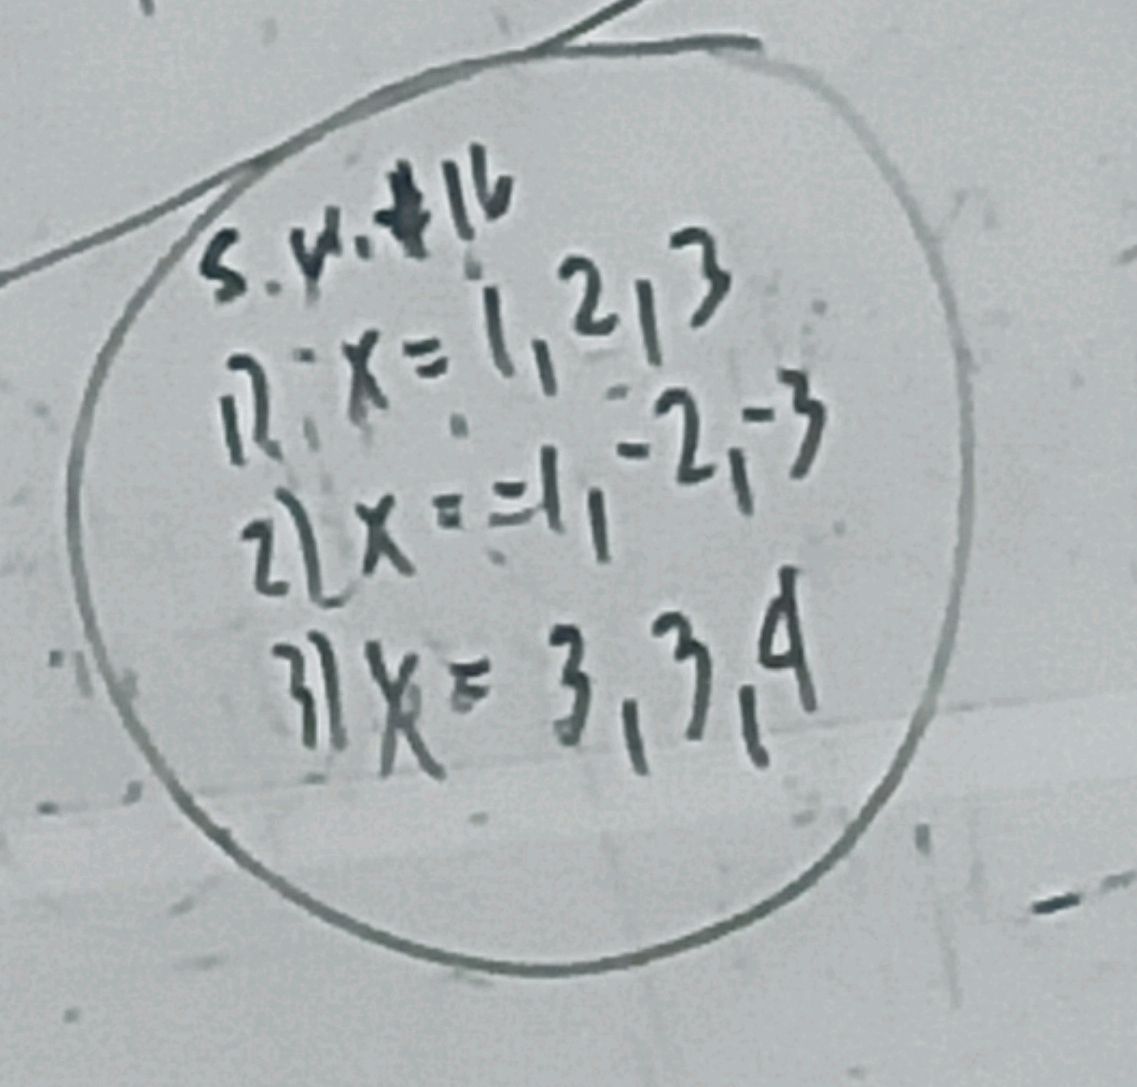 S.W. #16
1) x = 1, 2, 3
2) x = -1, -2, -3
3) x = 3, 3, 4